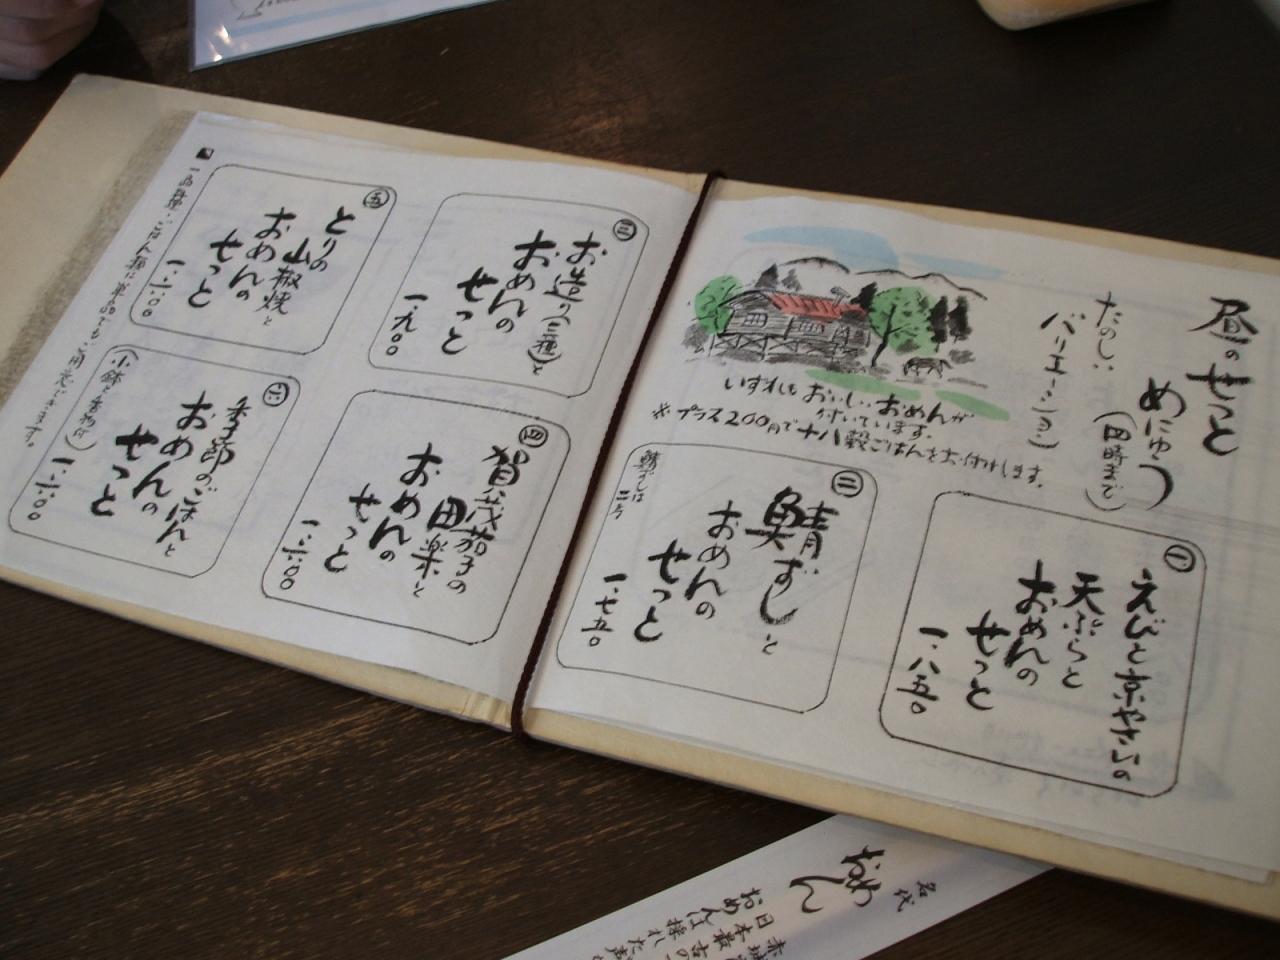 昼のせっと
めにゅう
(四時まで)
たのしい
バリエーション
いずれも おいしいおめんが
付いています。
※プラス200円で十八穀ごはんをお付けします。
一
えびと京やさいの
天ぷらと
おめんの
せっと
一、八五〇
二
鯖ずしと
おめんの
せっと
一、七五〇
鯖ずしは
三
お造り(三種)と
おめんの
せっと
一、九〇〇
四
賀茂茄子の
田楽と
おめんの
せっと
一、六〇〇
五
とりの
山椒焼と
おめんの
せっと
一、六〇〇
六
季節のごはんと
おめんの
せっと
(小鉢・香物付)
一、六〇〇
一品料理・ごはん類は単品でもご用意できます。
名代
おめん
赤城
日本最古の
おめんは採れた